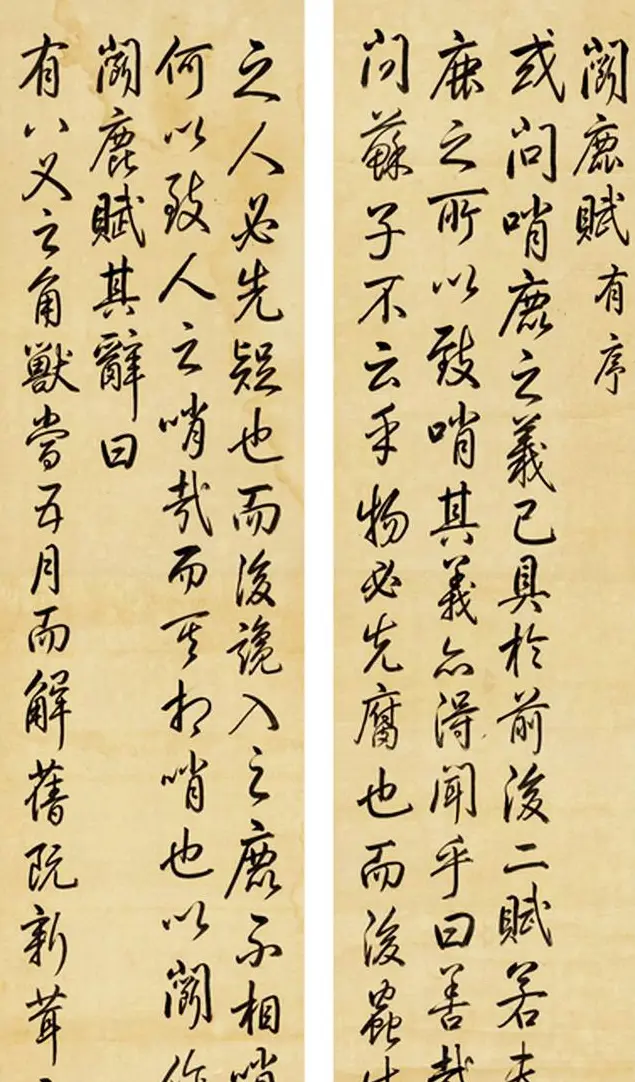 鬭鹿賦有序
或問哨鹿之義已具於前後二賦若夫
鹿之所以致哨其義亦得聞乎曰善哉
問蘇子不云乎物必先腐也而後蟲
之人必先疑也而後讒入之鹿不相哨
何以致人之哨哉而其相哨也以鬭
鬭鹿賦其辭曰
有八叉之角獸當五月而解舊阮新茸